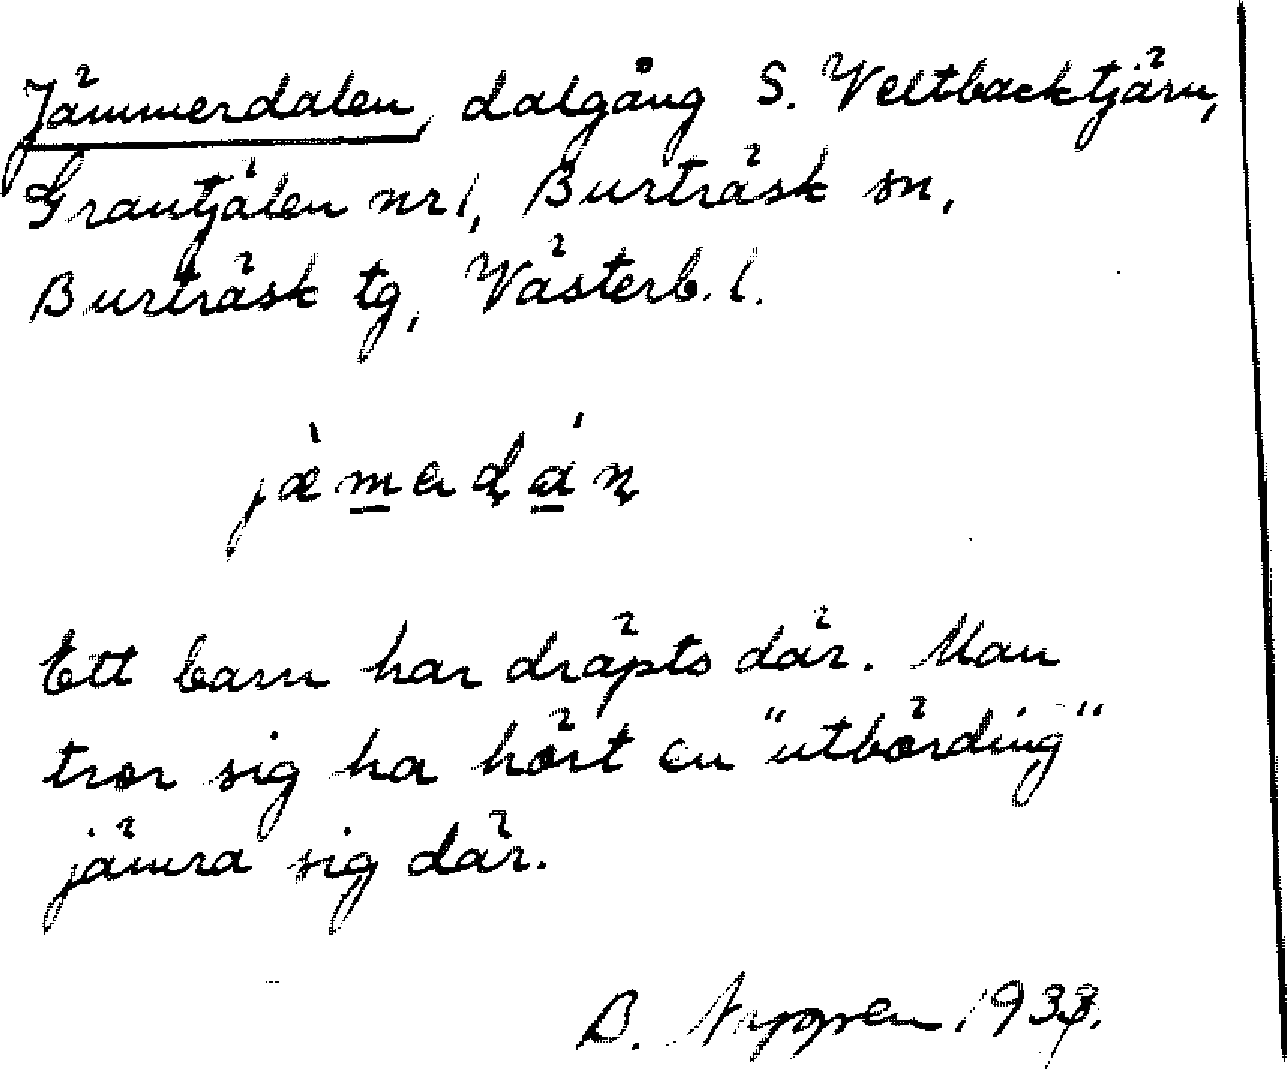 Jämmerdalen, dalgång S. Veltbacktjärn,
Grantjälen nr 1, Burträsk sn,
Burträsk tg, Västerb. l.
jæ̀madán
Ett barn har dräpts där. Man
tror sig ha hört en "utbörding"
jämra sig där.
B. 193